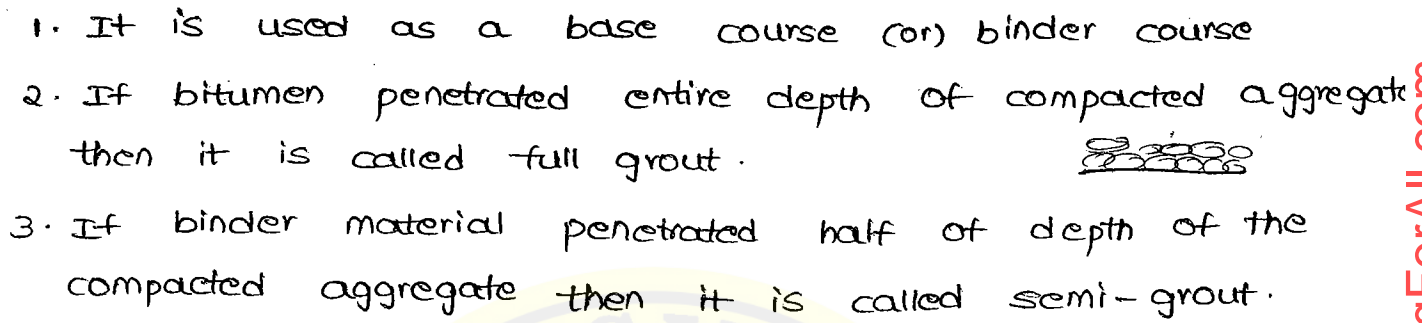 1. It is used as a base course (or) binder course
2. If bitumen penetrated entire depth of compacted aggregate
then it is called full grout.
3. If binder material penetrated half of depth of the
compacted aggregate then it is called semi-grout.